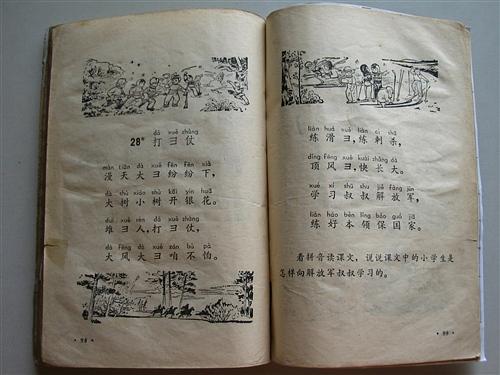 dǎ xuě zhàng
28* 打彐仗
màn tiān dà xuě fēn fēn xià
漫天大彐纷纷下,
dà shù xiǎo shù kāi yín huā
大树小树开银花。
duī xuě rén dǎ xuě zhàng
堆彐人,打彐仗,
dà fēng dà xuě zán bú pà
大风大彐咱不怕。
· 98 ·
liàn huá xuě liàn cì shā
练滑彐,练刺杀,
dǐng fēng xuě kuài zhǎng dà
顶风彐,快长大。
xué xí shū shu jiě fàng jūn
学习叔叔解放军,
liàn hǎo běn lǐng bǎo guó jiā
练好本领保国家。
看拼音读课文,说说课文中的小学生是
怎样向解放军叔叔学习的。
· 99 ·